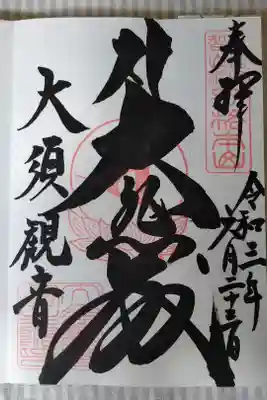 奉拝
令和三年
月二十三日
大悲殿
大須觀音